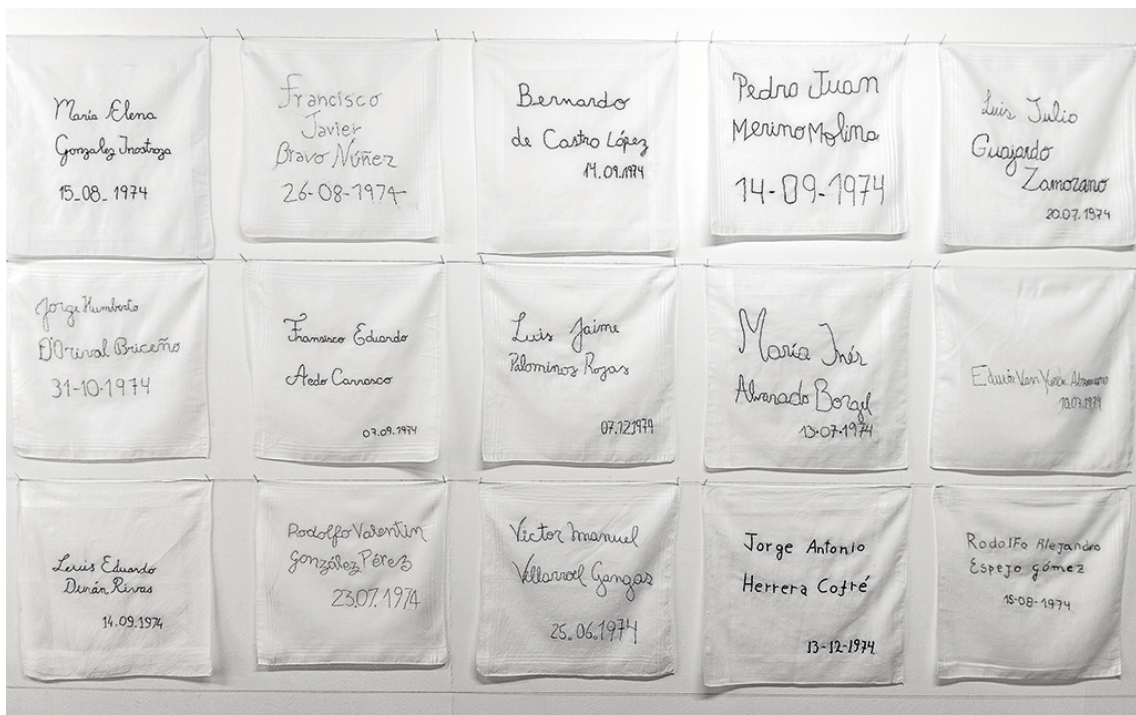 María Elena
Gonzalez Inostroza
15-08-1974
Francisco
Javier
Bravo Núñez
26-08-1974
Bernardo
de Castro López
14.09.1974
Pedro Juan
Merino Molina
14-09-1974
Luis Julio
Guajardo
Zamorano
20.07.1974
Jorge Humberto
D'Orival Briceño
31-10-1974
Francisco Eduardo
Aedo Carrasco
07.09.1974
Luis Jaime
Palominos Rojas
07.12.1974
María Inés
Alvarado Borgel
15-07-1974
Edwin Van
Luis Eduardo
Durán Rivas
14.09.1974
Rodolfo Valentin
González Pérez
23.07.1974
Victor Manuel
Villarroel Gangas
25.06.1974
Jorge Antonio
Herrera Cofré
13-12-1974
Rodolfo Alejandro
Espejo gómez
15-08-1974